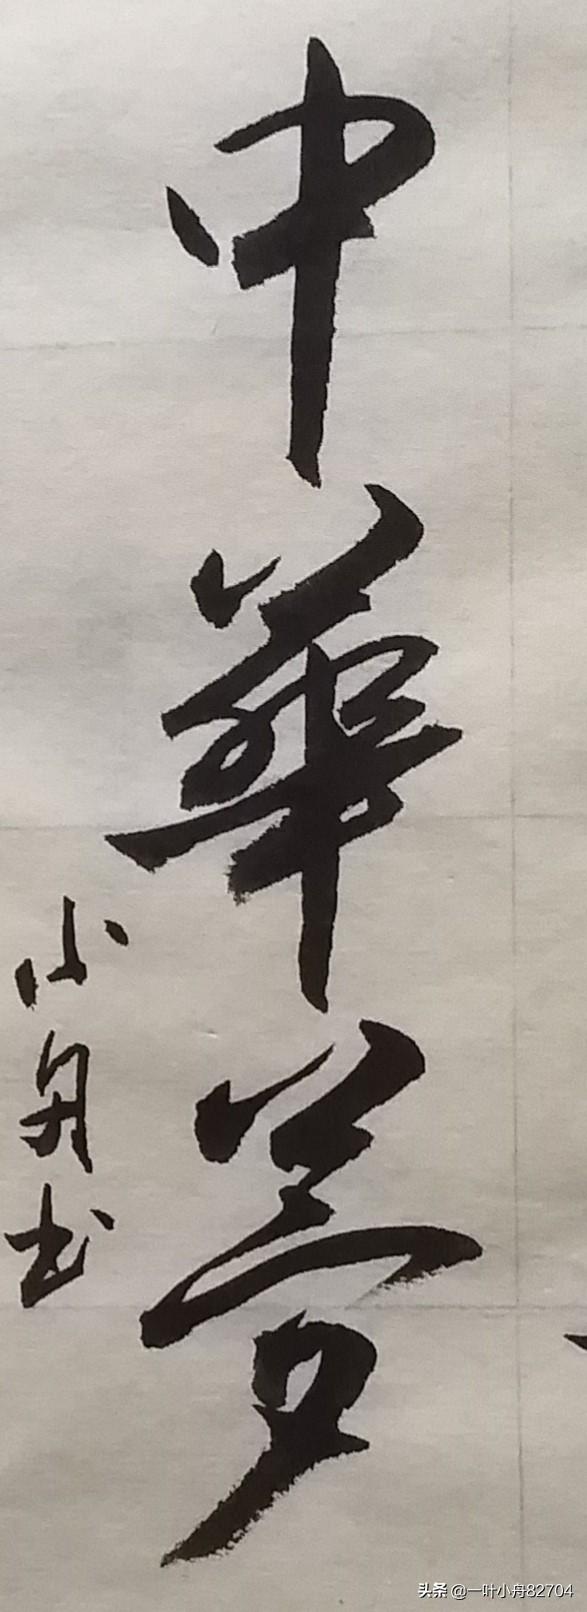 中華夢
小舟书
头条 @一叶小舟82704